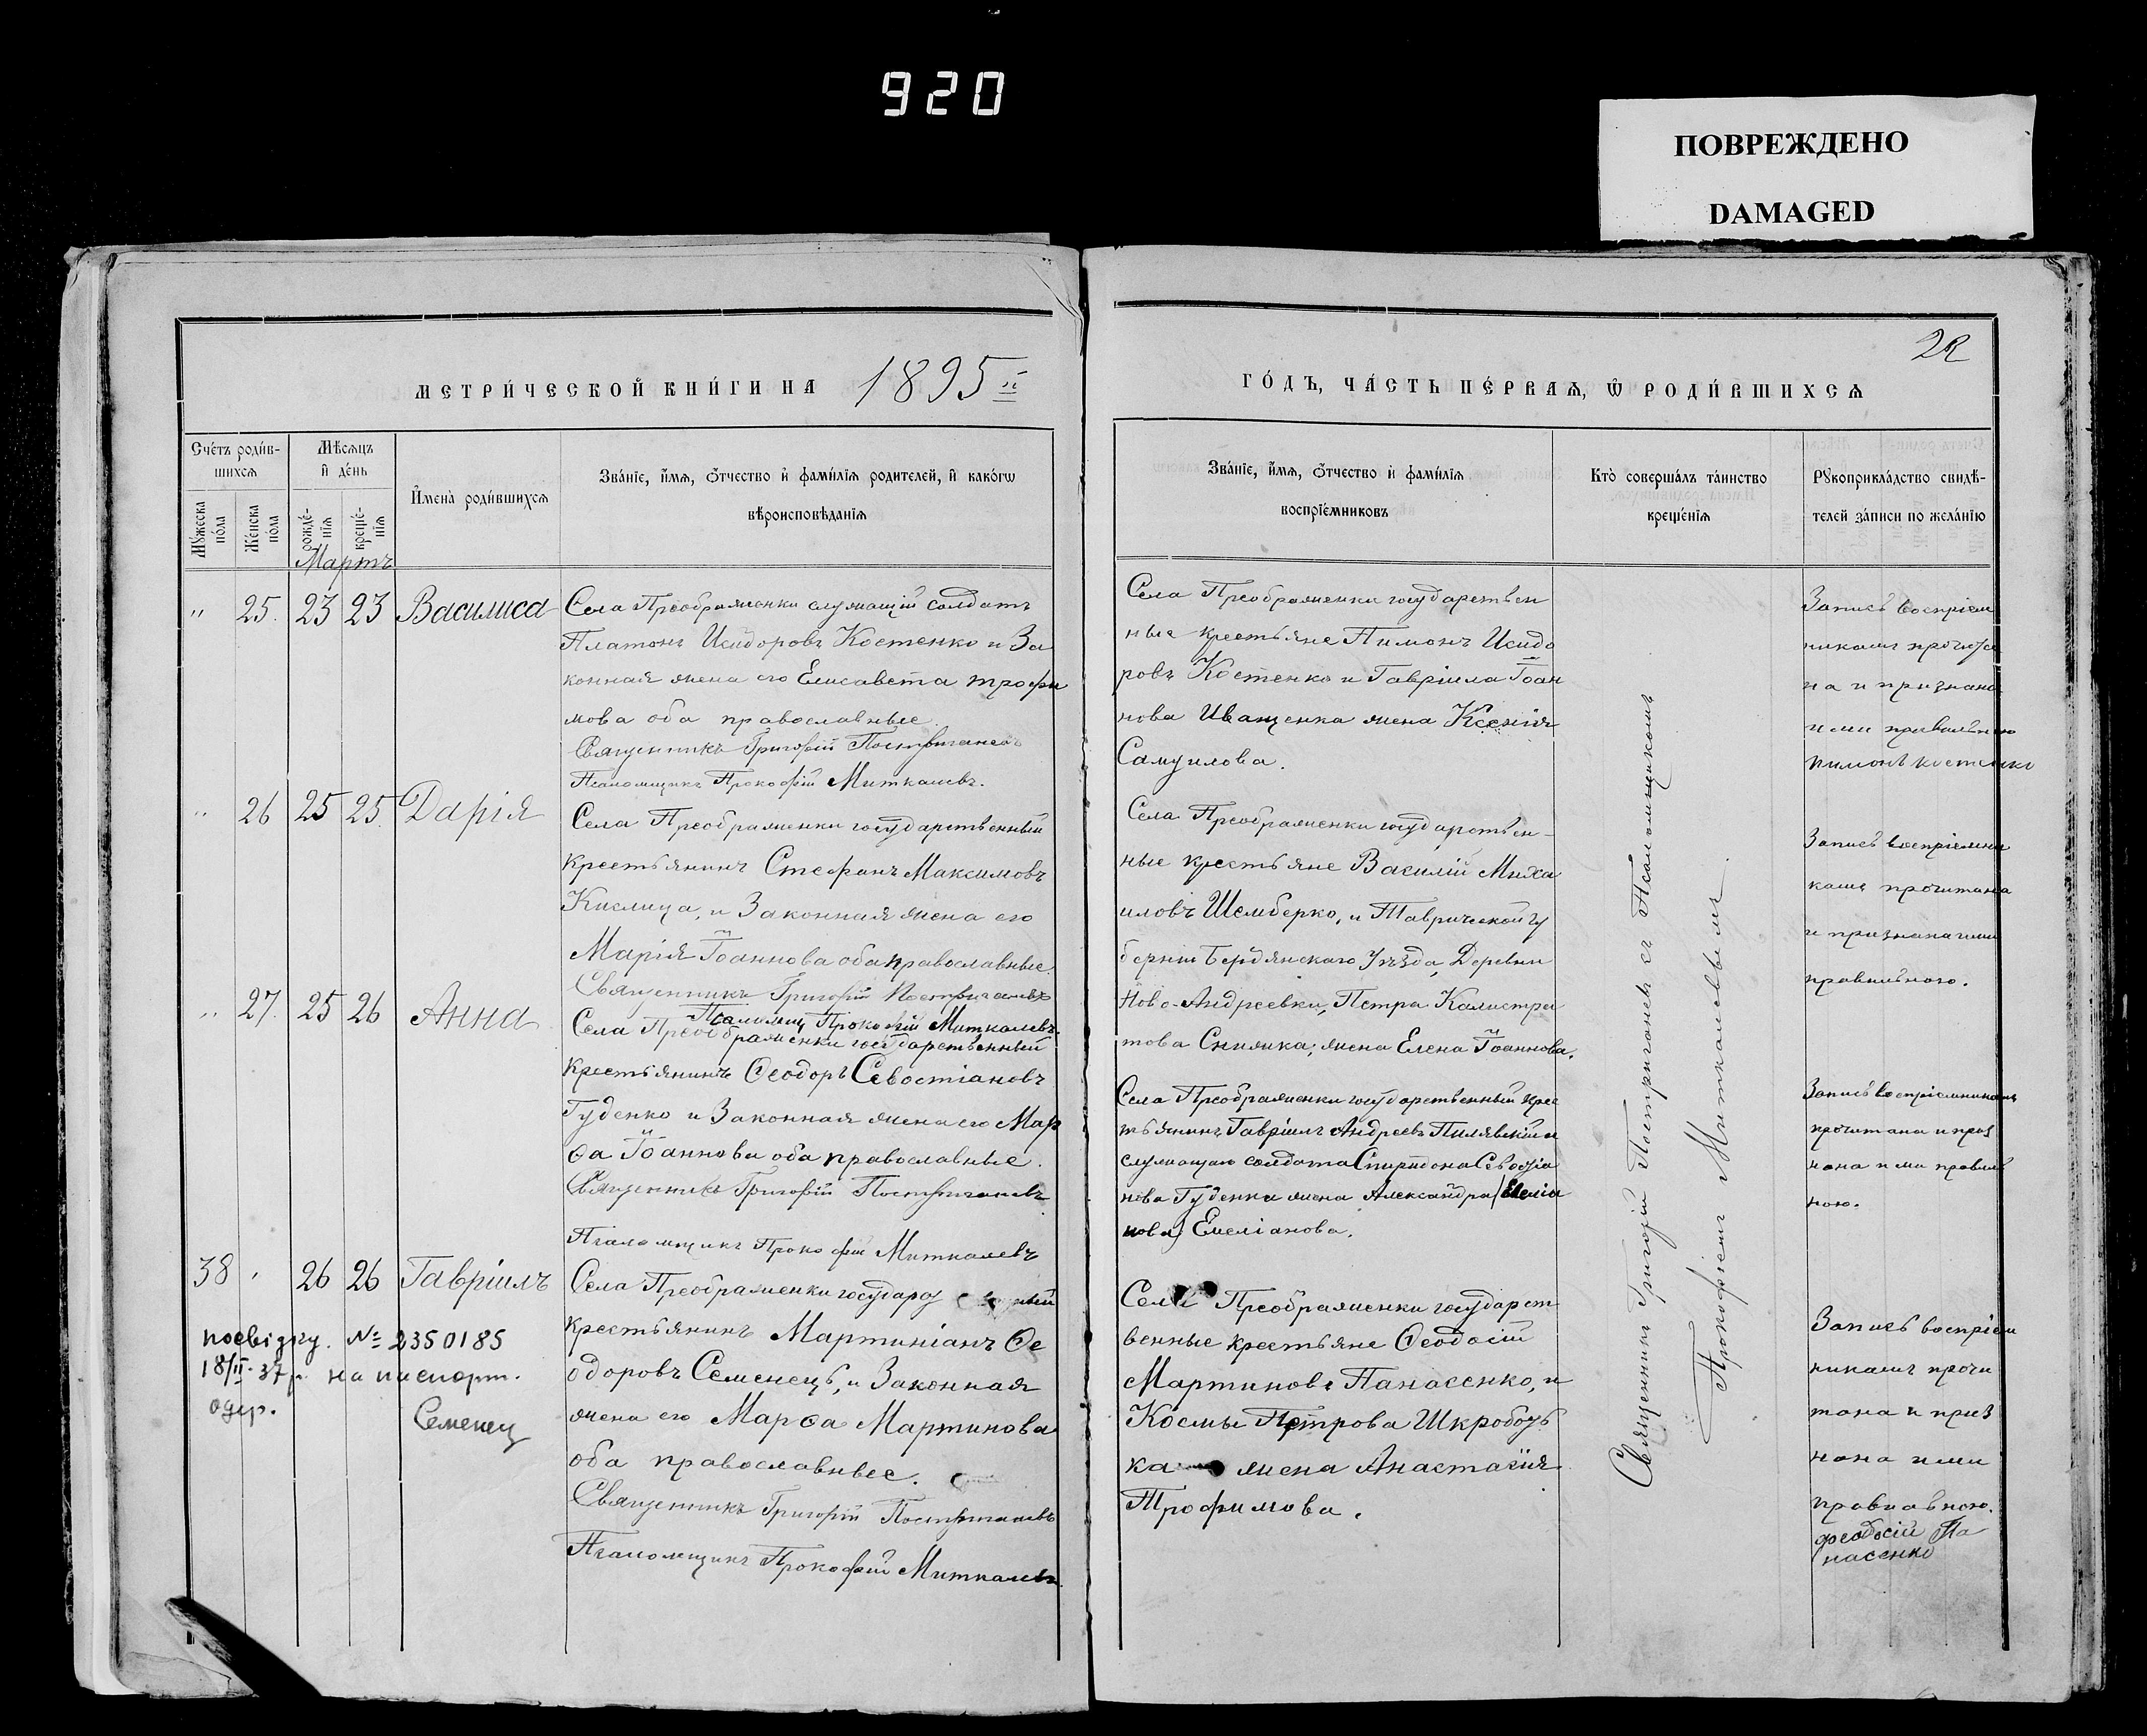 920
ПОВРЕЖДЕНО
DAMAGED
22
МЕТРИ́ЧЕСКОЙ КНИ́ГИ НА 1895й
ГО́ДЪ, ЧА́СТЬ ПЕ́РВАѦ, Ѡ҆ РОДИ́ВШИХСѦ
Сче́тъ роди́в-
шихсѧ
Мѣ́сѧцъ
и҆ де́нь
Мꙋ́жеска
по́ла
Же́нска
по́ла
рожде́-
нїѧ
креще́-
нїѧ
И҆мена̀ роди́вшихсѧ
Зва́нїе, и҆́мѧ, ѻ҆́тчество и҆ фами́лїѧ родителей, и҆ како́гѡ
вѣроисповѣ́данїѧ
Зва́нїе, и҆́мѧ, ѻ҆́тчество и҆ фами́лїѧ
воспрїе́мниковъ
Кто̀ соверша́лъ та́инство
креще́нїѧ
Рꙋкоприкла́дство свидѣ́-
телей за́писи по жела́нїю
Мартъ
" 25. 23 23 Василиса
Села Преображенки служащій солдатъ
Платонъ Исидоровъ Костенко и За
конная жена его Елисавета трофи
мова оба православные.
Священникъ Григорій Постригачевъ
Псаломщикъ Прокофій Миткалевъ.
Села Преображенки государствен
ные крестьяне Пимонъ Исидо
ровъ Костенко и Гавріила Іоан
нова Иващенка жена Ксенія
Самуилова.
Запись воспріем
никами прочита
на и признана
ими правильною
Пимонъ костенко
" 26 25 25 Дарія
Села Преображенки государственный
крестьянинъ Стефанъ Максимовъ
Кислица, и Законная жена его
Марія Іоаннова оба православные.
Священникъ Григорій Постригачевъ
Псаломщ. Прокофій Миткалевъ.
Села Преображенки государствен-
ные крестьяне Василій Миха
иловъ Шемберко, и Таврической гу
берніи Бердянскаго Уѣзда, Деревни
Ново-Андреевки, Петра Калистра
това Снижка, жена Елена Іоаннова.
Запись воспріемни
ками прочитана
и признана ими
правильною.
" 27. 25 26 Анна
Села Преображенки государственный
крестьянинъ Ѳеодоръ Севостіановъ
Гуденко и Законная жена его Мар
ѳа Іоаннова оба православные.
Священникъ Григорій Постригачевъ
Псаломщикъ Прокофій Миткалевъ
Села Преображенки государственный крес
тьянинъ Гавріилъ Андреевъ Пилявскій и
служащаго солдата Спиридона Севостіа
нова Гуденка жена Александра (Емеліа
нова) Емеліанова.
Запись воспріемниками
прочитана и приз
нана ими правиль
ною.
38 " 26 26 Гавріилъ
Села Преображенки государ
крестьянинъ Мартиніанъ Ѳе
одоровъ Семенецъ, и Законная
жена его Марѳа Мартинова
оба православные.
Священникъ Григорій Постригачевъ
Псаломщикъ Прокофій Миткалевъ.
посвідку. № 2350185
18/II-37 р. на паспорт.
одер.
Семенец
Села Преображенки государст
венные крестьяне Ѳеодосій
Мартиновъ Панасенко, и
Космы Петрова Шкробоць
ка жена Анастасія
Трофимова.
Запись воспріем
никами прочи
тана и приз
нана ими
правильною.
феодосій Па
насенко
Священникъ Григорій Постригачевъ съ Псаломщикомъ
Прокофіемъ Миткалевымъ.